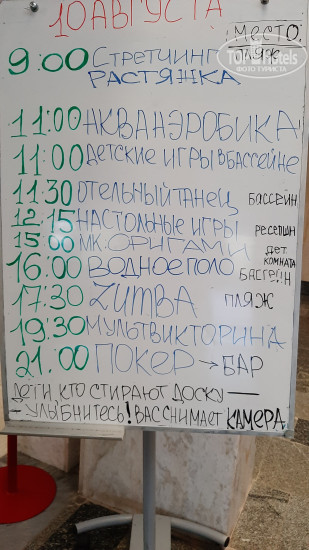 10 АВГУСТА
МЕСТО:
9:00 СТРЕТЧИНГ ПЛЯЖ
РАСТЯЖКА
11:00 АКВАЭРОБИКА
11:00 ДЕТСКИЕ ИГРЫ В БАССЕЙНЕ
11:30 ОТЕЛЬНЫЙ ТАНЕЦ БАССЕЙН
12:15 НАСТОЛЬНЫЕ ИГРЫ РЕСЕПШН
15:00 МК: ОРИГАМИ ДЕТ. КОМНАТА
16:00 ВОДНОЕ ПОЛО БАССЕЙН
17:30 ZUMBA ПЛЯЖ
19:30 МУЛЬТВИКТОРИНА
21:00 ПОКЕР → БАР
ДЕТИ, КТО СТИРАЮТ ДОСКУ —
– УЛЫБНИТЕСЬ! ВАС СНИМАЕТ КАМЕРА
TopHotels
ФОТО ТУРИСТА